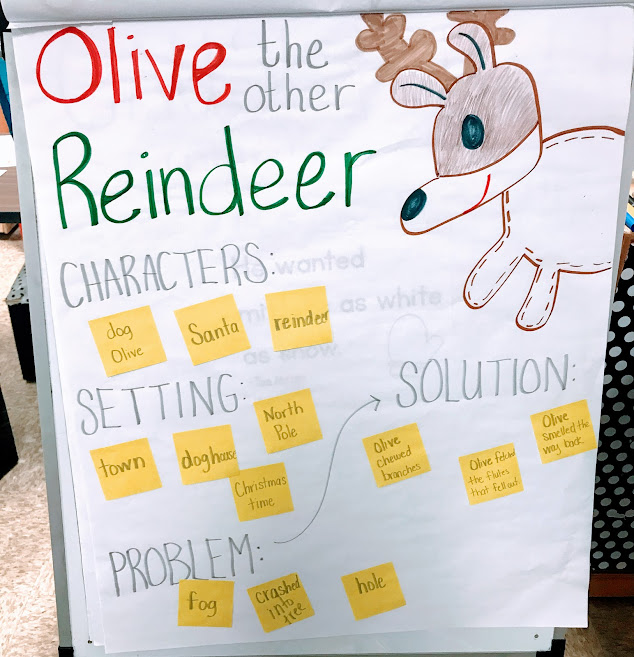 Olive the
other
Reindeer
CHARACTERS:
dog
Olive
Santa
reindeer
SETTING:
town
doghouse
North
Pole
Christmas
time
PROBLEM:
fog
crashed
into
tree
hole
SOLUTION:
Olive
chewed
branches
Olive fetched
the flutes
that fell out
Olive
smelled the
way back
wanted
as white
as snow.